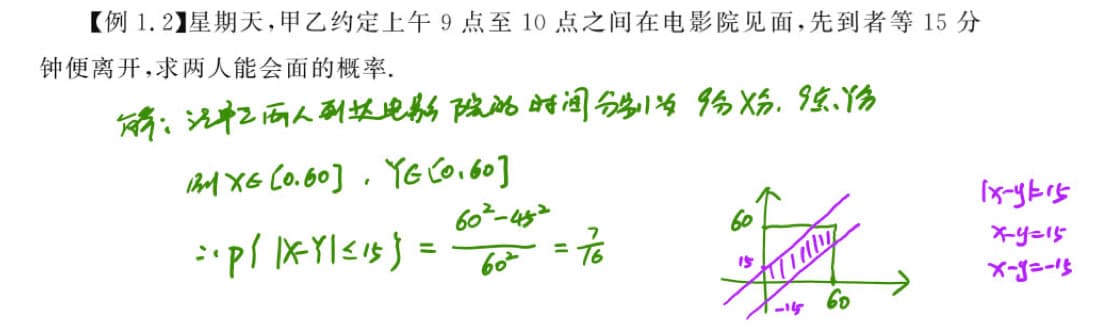 【例 1.2】星期天,甲乙约定上午 9 点至 10 点之间在电影院见面,先到者等 15 分
钟便离开,求两人能会面的概率.
解: 设甲乙两人到达电影院的时间分别为 9点X分. 9点Y分
则 X∈[0.60] , Y∈[0,60]
∴ P{ |X-Y| ≤ 15 } = (60²-45²)/60² = 7/16
60
15
-15
60
|x-y|=15
x-y=15
x-y=-15